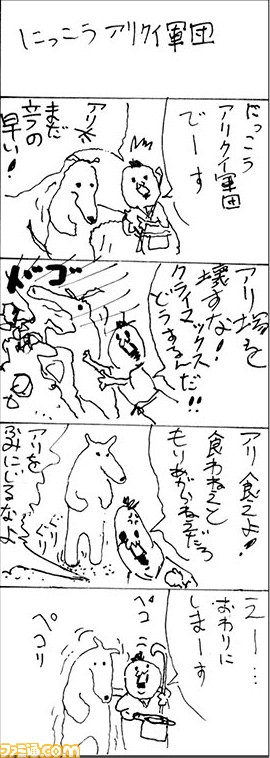 にっこうアリクイ軍団
にっこう
アリクイ軍団
でーす
アリ
まだ
立つの
早い!
アリ塚を
壊すな!
クライマックス
どうするんだ!!
バゴ
アリ食えよ!
食わねえと
もりあがんねえだろ
アリを
ふみにじるなよ
えー…
おわりに
しまーす
ペコ
ペコリ
ファミ通.com